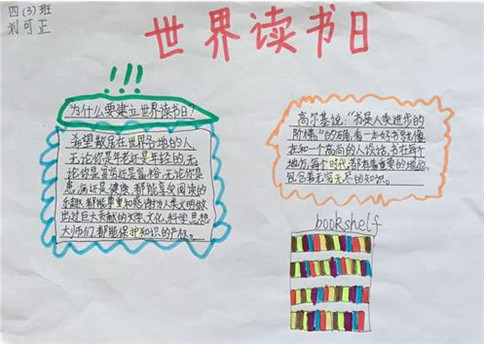 四(3)班
刘可正
世界读书日
!!!
为什么要建立世界读书日?
希望散居在世界各地的人,
无论你是年老还是年轻的,无
论你是贫穷还是富裕,无论你是
患病还是健康,都能享受阅读的
乐趣,都能尊重和感谢为人类文明做
出过巨大贡献的文学,文化,科学,思想
大师们,都能保护知识的产权。
高尔基说:“书是人类进步的
阶梯。”的确,看一本好书就像
在和一个高尚的人谈话,书在每个
地方,每个时代,都有着重要的地位,
包含着无穷无尽的知识。
bookshelf